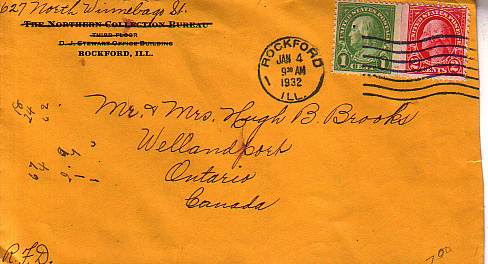 627 North Winnebago St.
THE NORTHERN COLLECTION BUREAU
THIRD FLOOR
D. J. STEWART OFFICE BUILDING
ROCKFORD, ILL.
ROCKFORD
JAN 4
9 30 AM
1932
ILL.
1 CENT 1
2 CENTS 2
Mr. & Mrs. Hugh B. Brooks
Wellandport
Ontario
Canada
R.F.D.